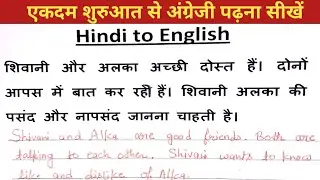 एकदम शुरुआत से अंग्रेजी पढ़ना सीखें
Hindi to English
शिवानी और अलका अच्छी दोस्त हैं। दोनों
आपस में बात कर रही हैं। शिवानी अलका की
पसंद और नापसंद जानना चाहती है।
Shivani and Alka are good friends. Both are
talking to each other. Shivani wants to know
like and dislike of Alka.